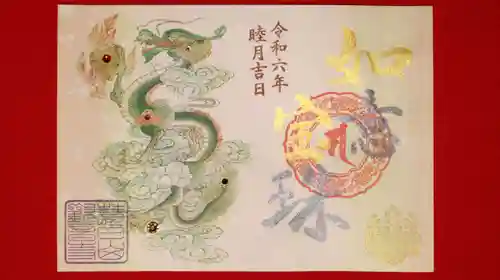 如
意
宝
珠
令和六年
睦月吉日